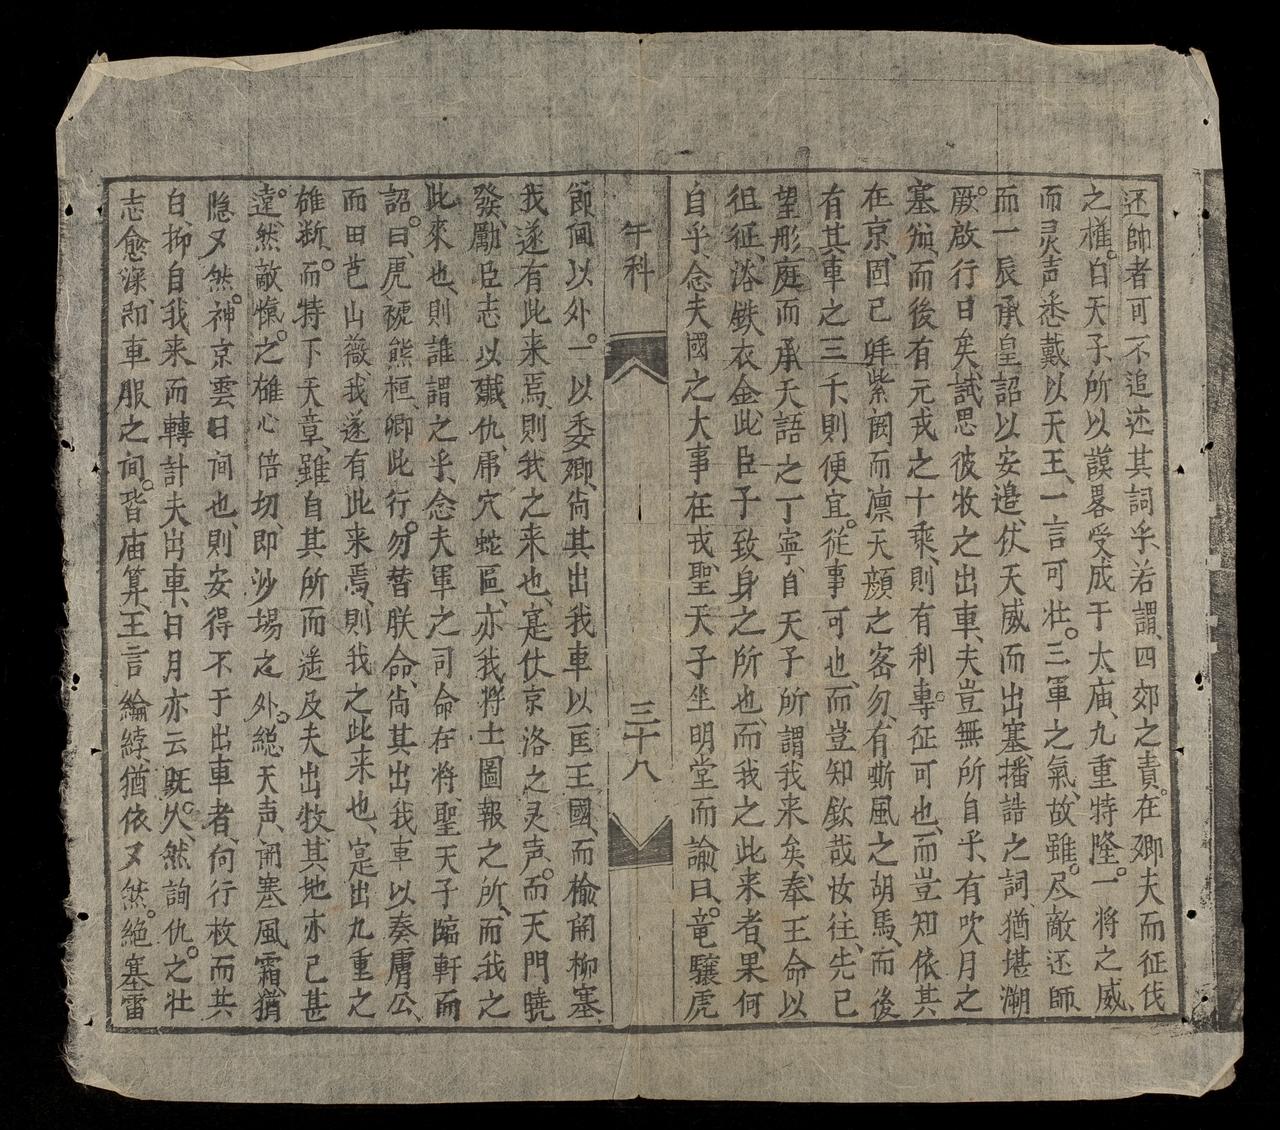 还帥者可不追述其詞乎、若謂、四郊之責。在卿夫而征伐
之権。自天子、所以謨畧受成于太庙、九重特隆。一将之威、
而灵声悉戴以天王、一言可壮。三軍之氣、故雖。尽敵还師、
而一辰承皇詔以安邉、伏天威而出塞、播誥之詞猶堪溯
厥。啟行日矣、試思彼牧之出車、夫豈無所自乎、有吹月之
塞笳、而後有元戎之十乘、則有利專。征可也、而豈知依其
在京、固已拜紫闕而凛天顔之密勿、有嘶風之胡馬、而後
有其車之三千、則便宜。従事可也、而豈知欽哉汝往、先已
望彤庭而承天語之丁寧、自天子所謂我来矣、奉王命以
徂征、浴鉄衣金、此臣子致身之所也、而我之此来者、果何
自乎、念夫國之大事在戎、聖天子坐明堂而諭曰。竜驤虎
午科 三十八
節、閫以外。一以委卿、尚其出我車以匡王國、而榆関柳塞、
我遂有此来焉、則我之来也、寔仗京洛之灵声。而天門曉
發、勵臣志以殲仇、虎穴蛇區、亦我将士圖報之所、而我之
此來也、則誰謂之乎、念夫軍之司命在将、聖天子臨軒而
詔。曰、虎貔熊桓、卿此行。勿替朕命、尚其出我車以奏膚公、
而田芑山薇、我遂有此来焉、則我之此来也、寔出九重之
雄断。而特下天章、雖自其所而遥及夫出牧、其地亦已甚
遠。然敵愾。之雄心倍切、即沙場之外。総天声、関塞風霜、猶
隐又然。神京雲日间也、則安得不于出車者、何行枚而共
白、抑自我来而轉計夫出車、日月亦云既。久、然詢仇。之壮
志愈深、即車服之间。皆庙算、王言綸綍、猶依又然。絶塞雷